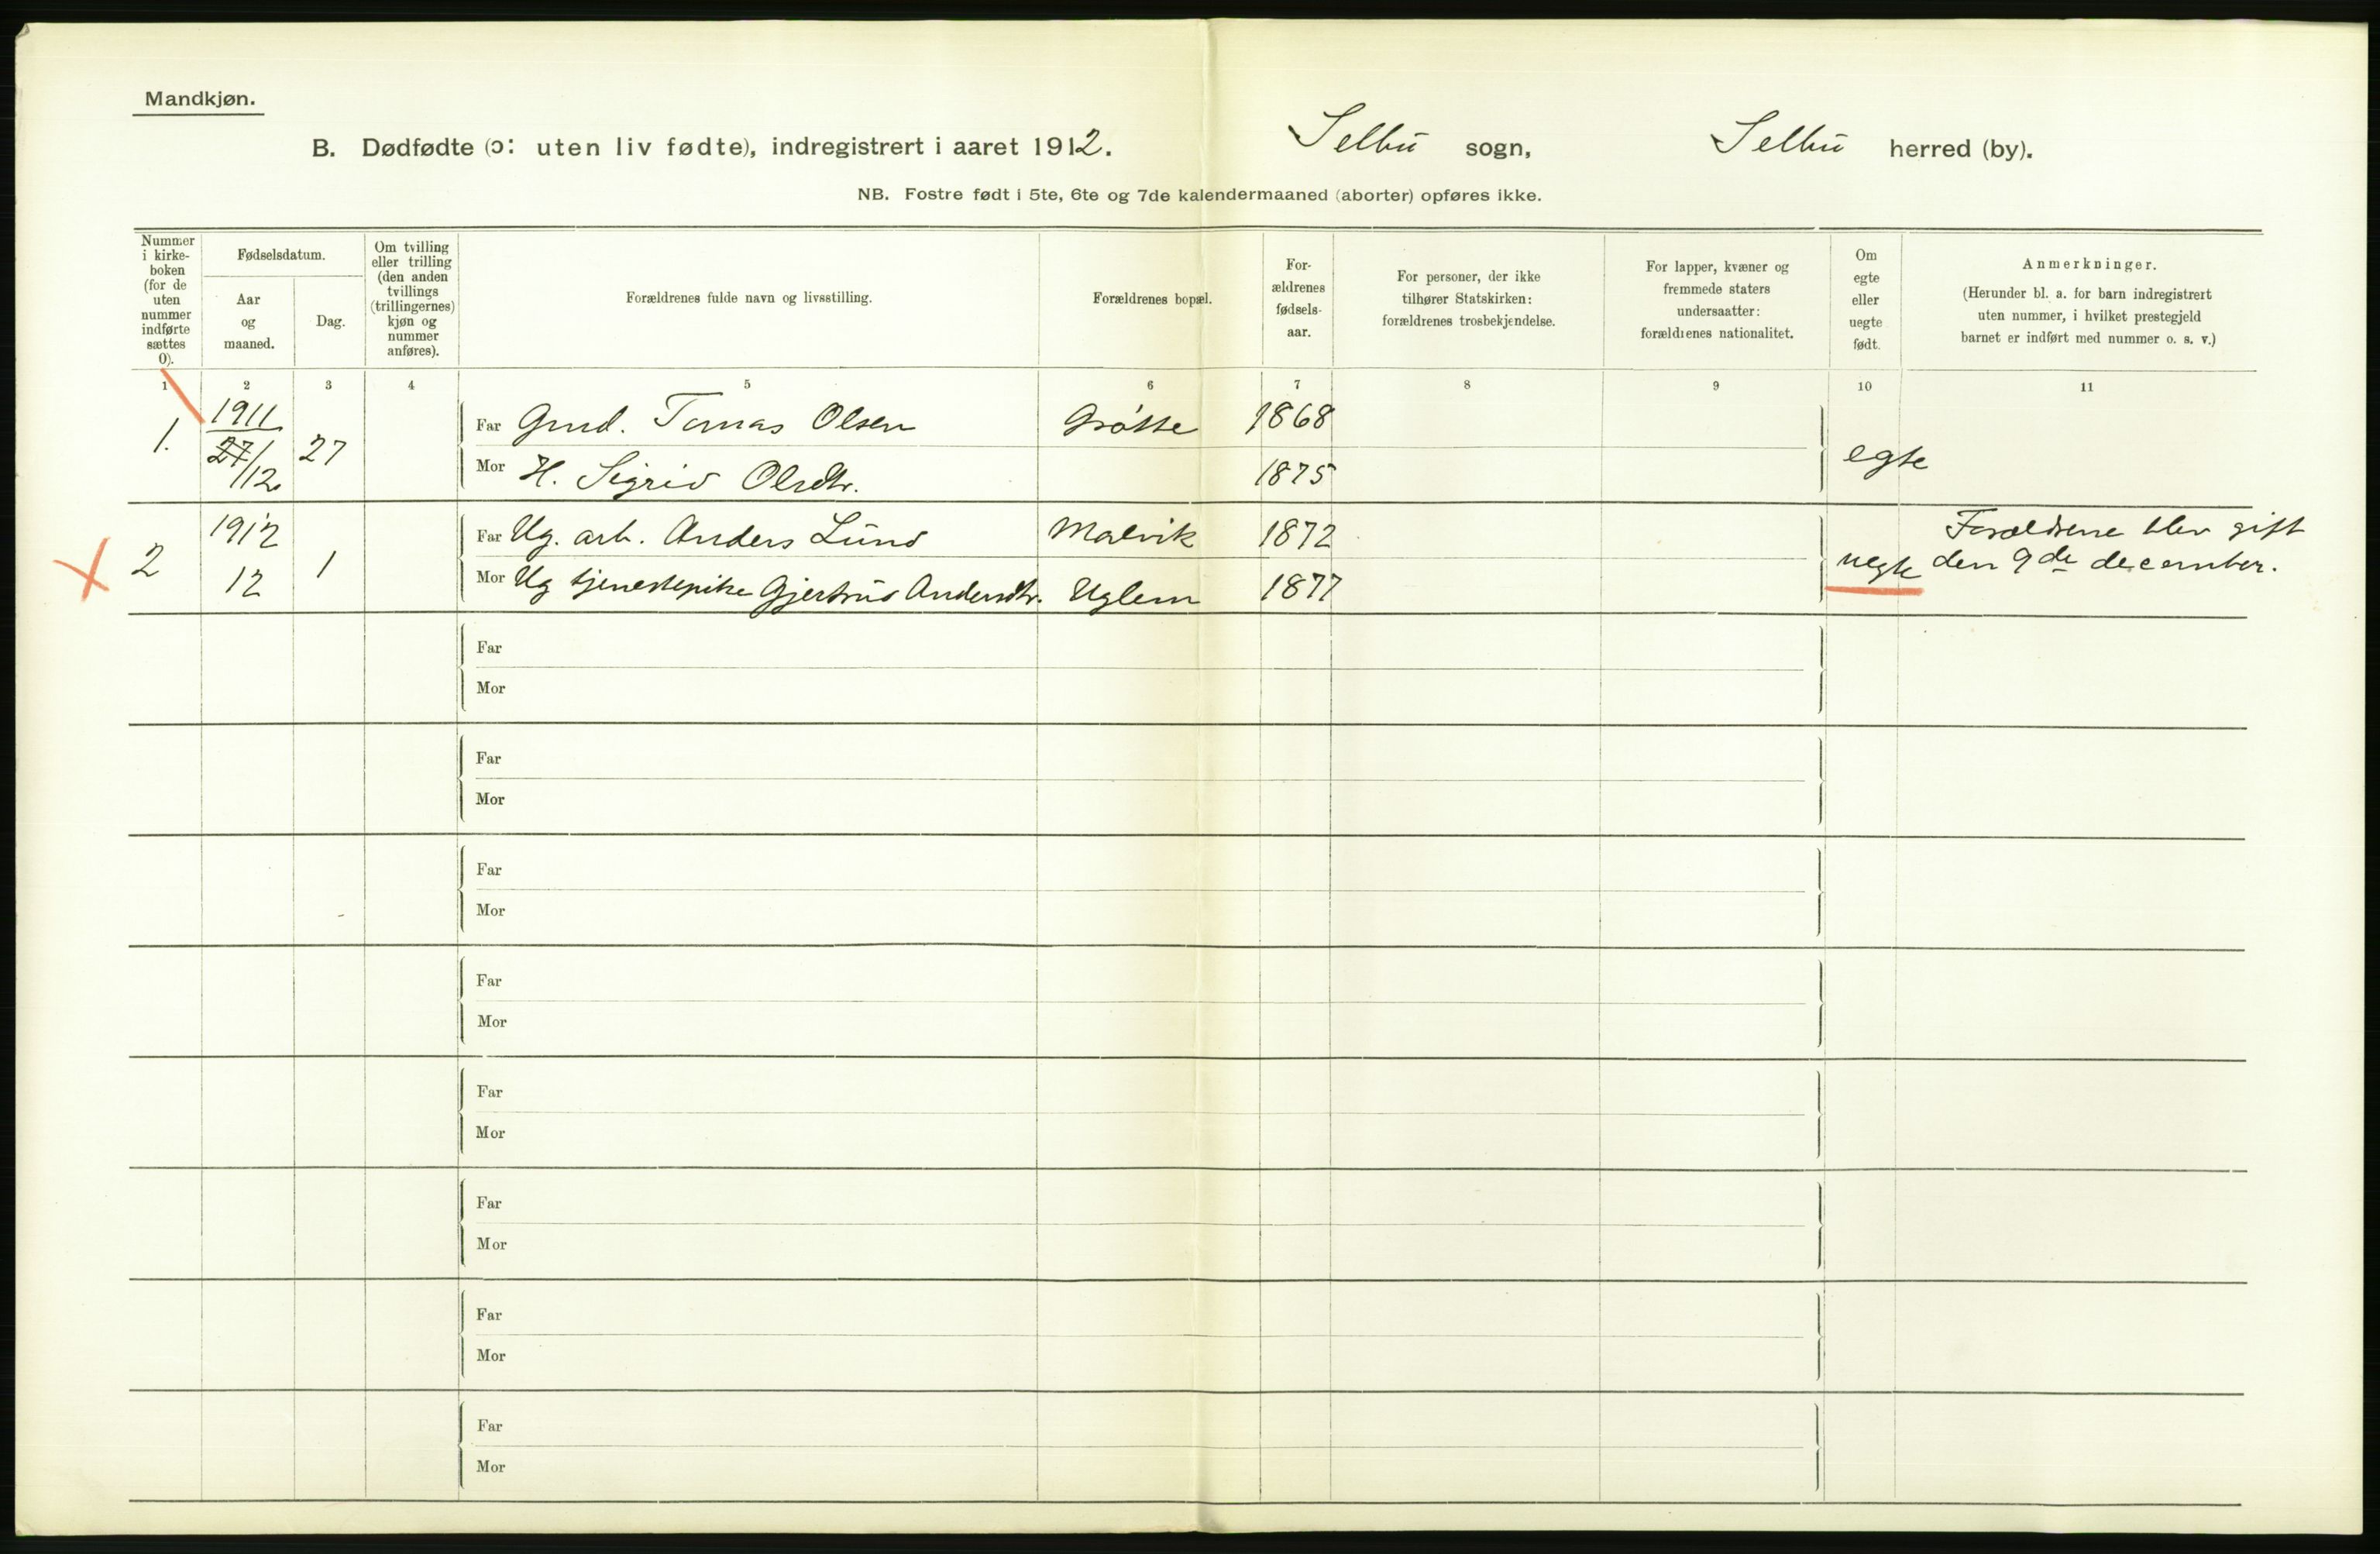 Mandkjøn.
B. Dødfødte (ɔ: uten liv fødte), indregistrert i aaret 1912. Selbu sogn, Selbu herred (by).
NB. Fostre født i 5te, 6te og 7de kalendermaaned (aborter) opføres ikke.
Nummer
i kirke-
boken
(for de
uten
nummer
indførte
sættes
0).
Fødselsdatum.
Aar
og
maaned.
Dag.
Om tvilling
eller trilling
(den anden
tvillings
(trillingernes)
kjøn og
nummer
anføres).
Forældrenes fulde navn og livsstilling.
Forældrenes bopæl.
For-
ældrenes
fødsels-
aar.
For personer, der ikke
tilhører Statskirken:
forældrenes trosbekjendelse.
For lapper, kvæner og
fremmede staters
undersaatter:
forældrenes nationalitet.
Om
egte
eller
uegte
født.
Anmerkninger.
(Herunder bl. a. for barn indregistrert
uten nummer, i hvilket prestegjeld
barnet er indført med nummer o. s. v.)
1 2 3 4 5 6 7 8 9 10 11
1. 1911 27/12 27 Far Grnd. Tomas Olsen Grøtte 1868
Mor H. Sigrid Olsdtr. 1875 egte
2 1912 12 1 Far Ug. arb. Anders Lund Malvik 1872 Forældrene blev gift
Mor Ug tjenestepike Gjertrud Andersdtr. Uglem 1877 uegte den 9de december.
Far
Mor
Far
Mor
Far
Mor
Far
Mor
Far
Mor
Far
Mor
Far
Mor
Far
Mor